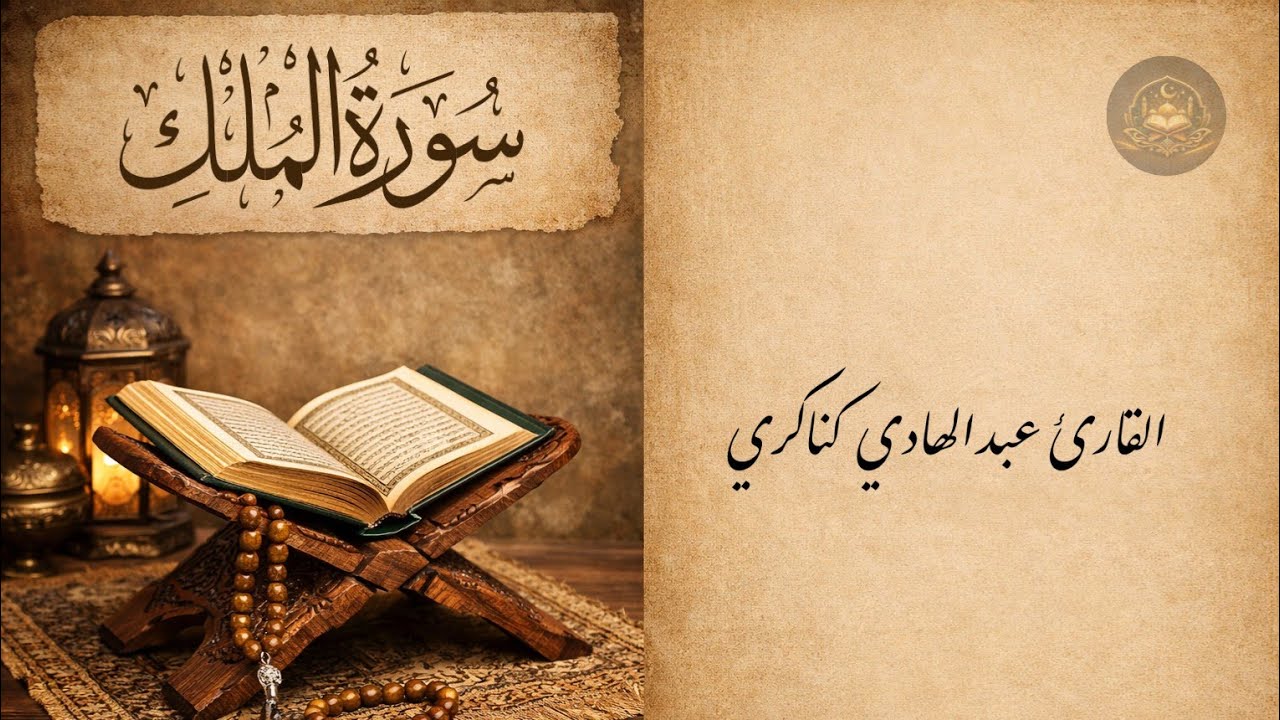 سُورَةُ الْمُلْكِ
القارئ عبد الهادي كناكري